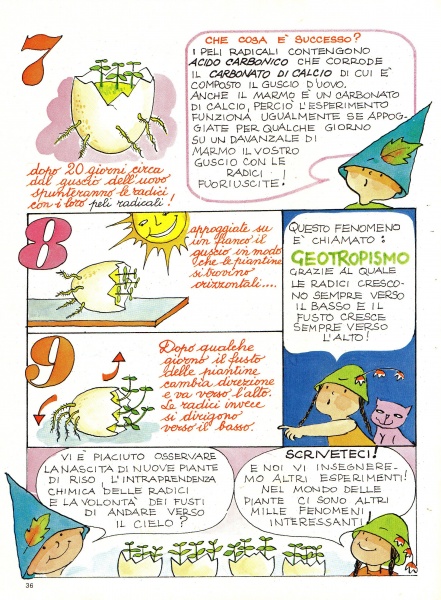 7
CHE COSA È SUCCESSO?
I PELI RADICALI CONTENGONO
ACIDO CARBONICO CHE CORRODE
IL CARBONATO DI CALCIO DI CUI E'
COMPOSTO IL GUSCIO D'UOVO.
ANCHE IL MARMO E' UN CARBONATO
DI CALCIO, PERCIO' L'ESPERIMENTO
FUNZIONA UGUALMENTE SE APPOG-
GIATE PER QUALCHE GIORNO
SU UN DAVANZALE DI
MARMO IL VOSTRO
GUSCIO CON LE
RADICI
FUORIUSCITE!
dopo 20 giorni circa
dal guscio dell'uovo
spunteranno le radici
con i loro peli radicali!
8
appoggiate su
un fianco il
guscio in modo
che le piantine
si trovino
orizzontali....
QUESTO FENOMENO
E' CHIAMATO:
GEOTROPISMO
GRAZIE AL QUALE
LE RADICI CRESCO-
NO SEMPRE VERSO
IL BASSO E IL
FUSTO CRESCE
SEMPRE VERSO
L'ALTO!
9
Dopo qualche
giorno il fusto
delle piantine
cambia direzione
e va verso l'alto.
Le radici invece
si dirigono
verso il basso.
VI E' PIACIUTO OSSERVARE
LA NASCITA DI NUOVE PIANTE
DI RISO, L'INTRAPRENDENZA
CHIMICA DELLE RADICI
E LA VOLONTÀ DEI FUSTI
DI ANDARE VERSO
IL CIELO?
SCRIVETECI!
E NOI VI INSEGNERE-
MO ALTRI ESPERIMENTI!
NEL MONDO DELLE
PIANTE CI SONO ALTRI
MILLE FENOMENI
INTERESSANTI!
36